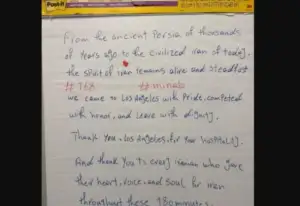 Post-it
From the ancient Persia of thousands
of years ago to the civilized iran of today,
the spirit of iran remains alive and steadfast
we came to Los Angeles with Pride, competed
with honor, and leave with dignity.
Thank you, Los Angeles, for your hospitality.
And thank you to every iranian who gave
their heart, voice, and soul for iran
throughout these 180 minutes.